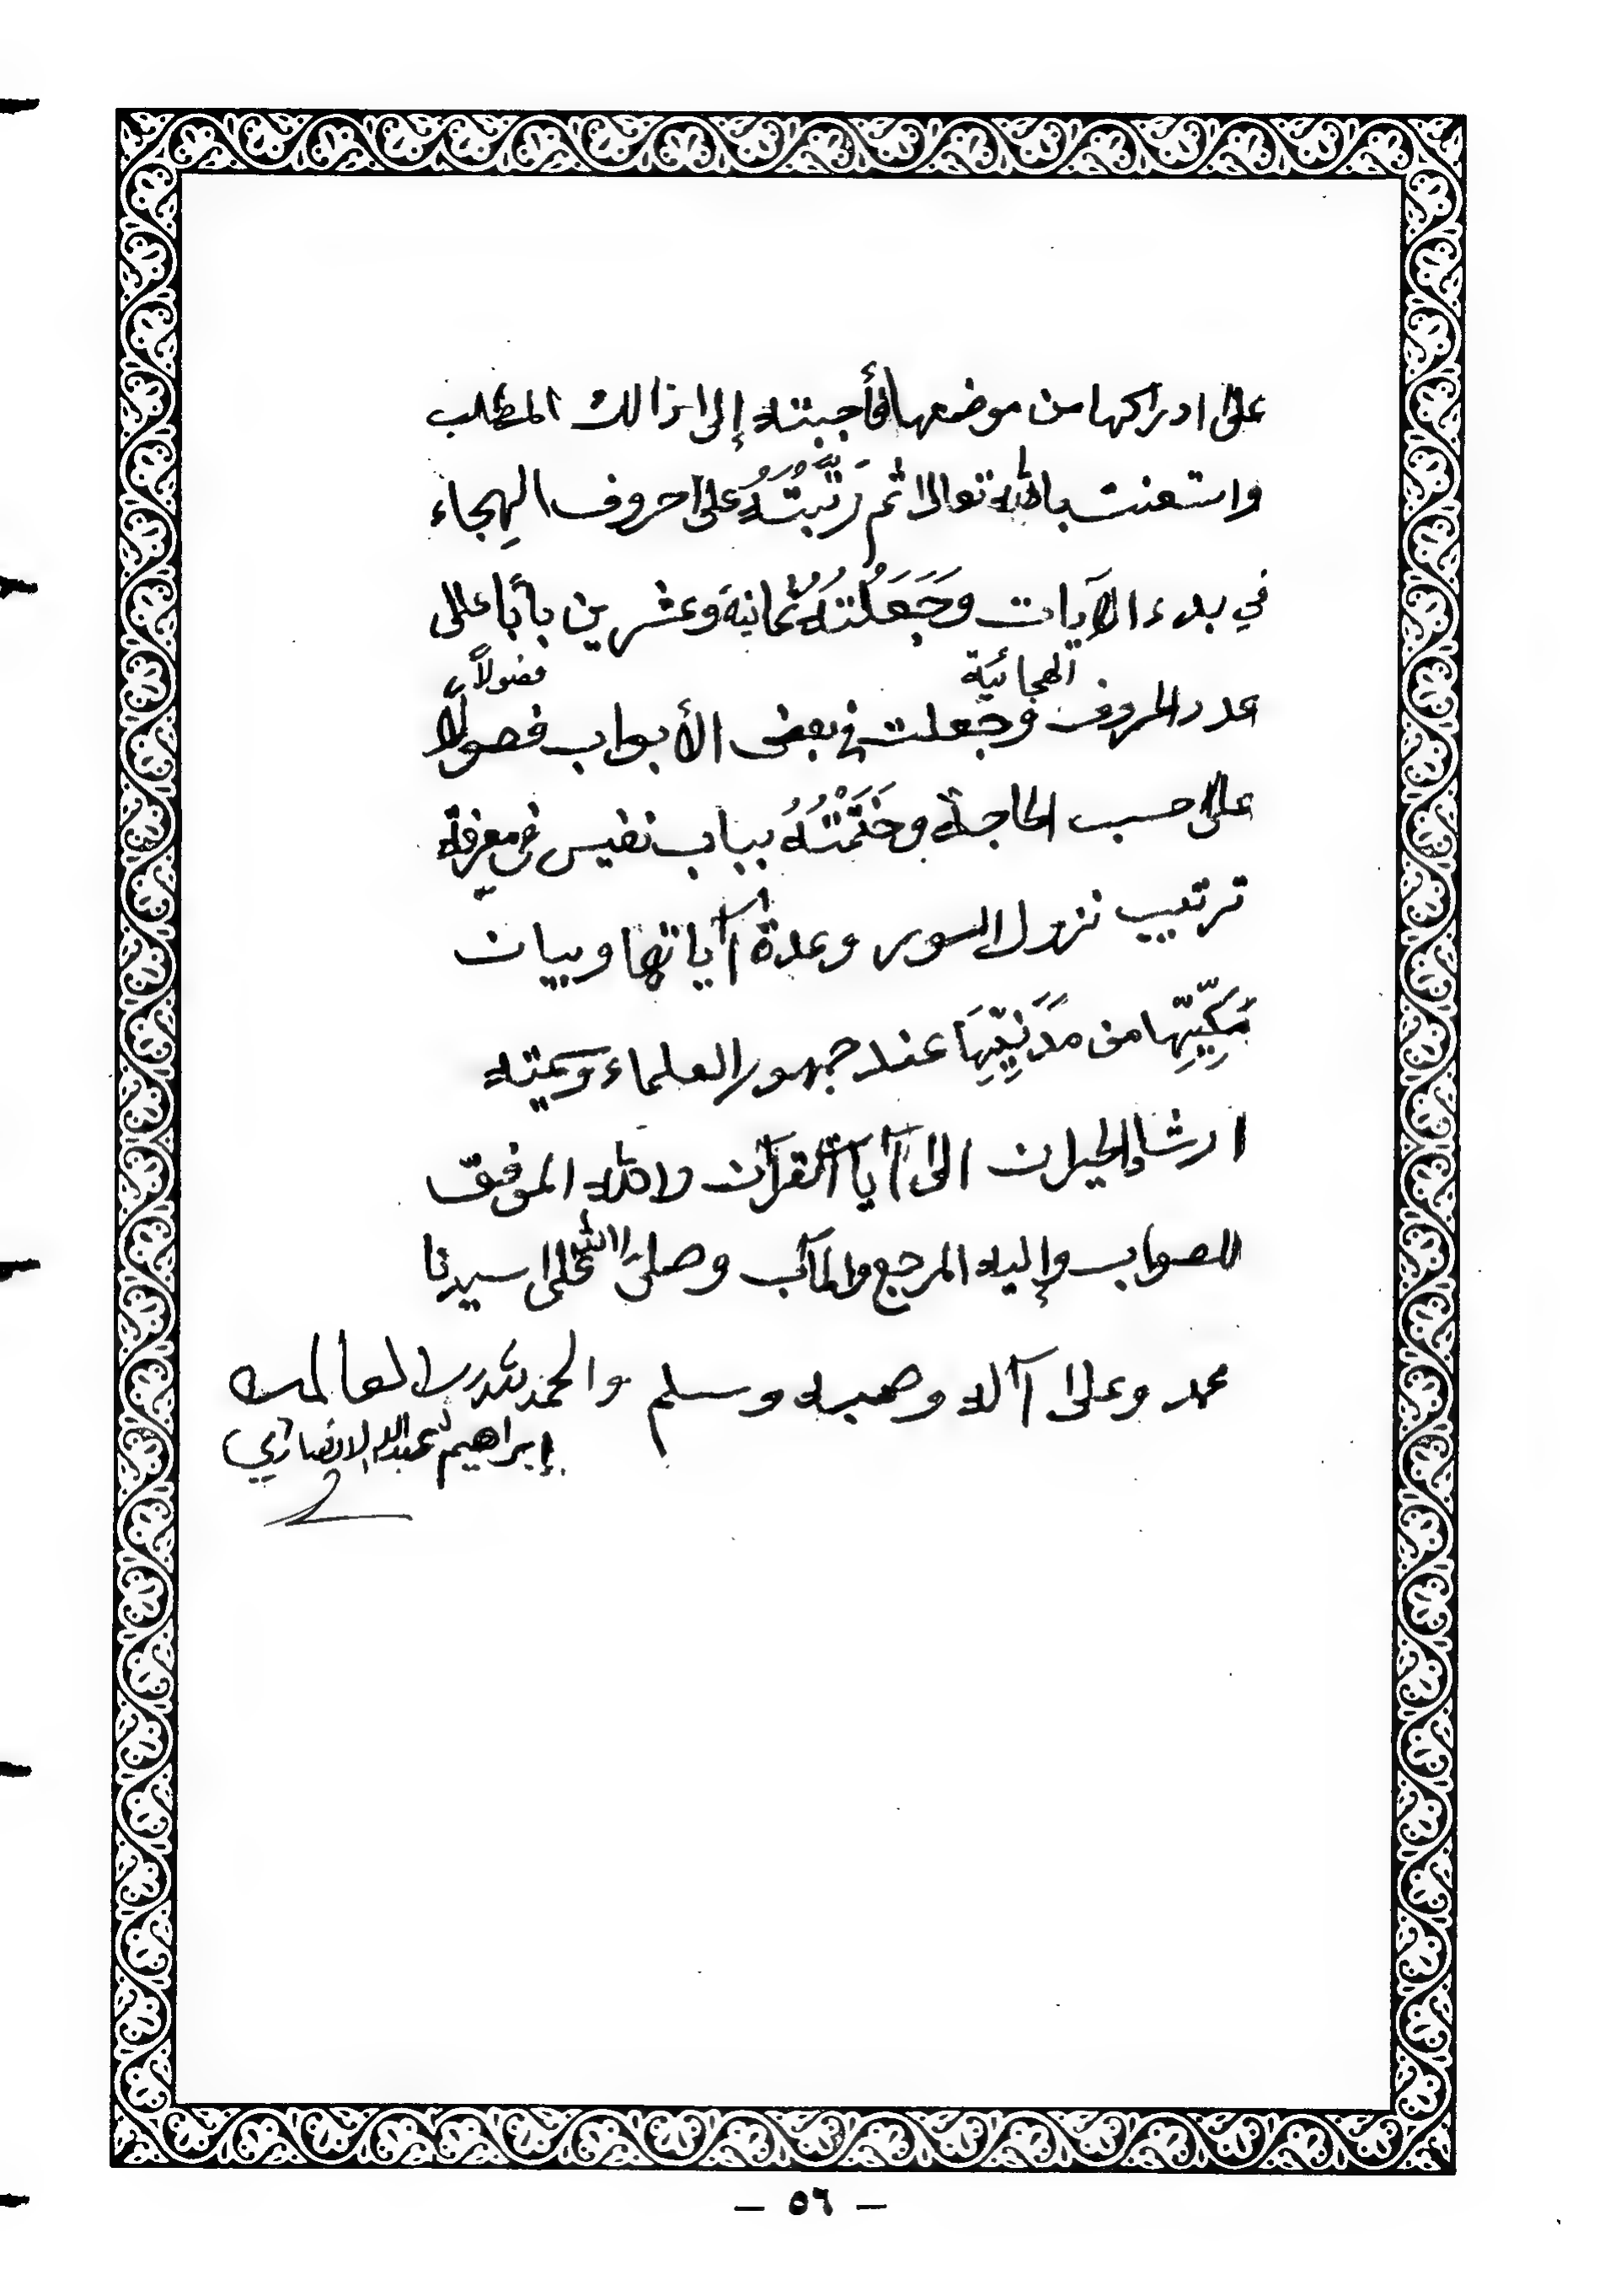 على ادراكها من موضعها فأجبته إلى ذالك المطلب
واستعنت بالله تعالى ثم رَتَّبتُهُ على حروف الهِجاء
في بدء الآيات وَجَعَلْتهُ ثمانية وعشرين بابًا على
الهجائية فصولاً
عدد الحروف وجعلت في بعض الأبواب فصولاً
على حسب الحاجة وخَتَمْتُهُ بباب نفيس في معرفة
ترتيب نزول السور وعدة آياتها وبيان
مَكِّيِّها من مَدَنِيِّهَا عند جمهور العلماء وسميته
ارشاد الحيران الى آيات القرآن والله الموفق
للصواب وإليه المرجع والمآب وصلى الله على سيدنا
محمد وعلى آله وصحبه وسلم والحمد لله رب العالمين
إبراهيم عبدالله الانصاري
— ٥٦ —